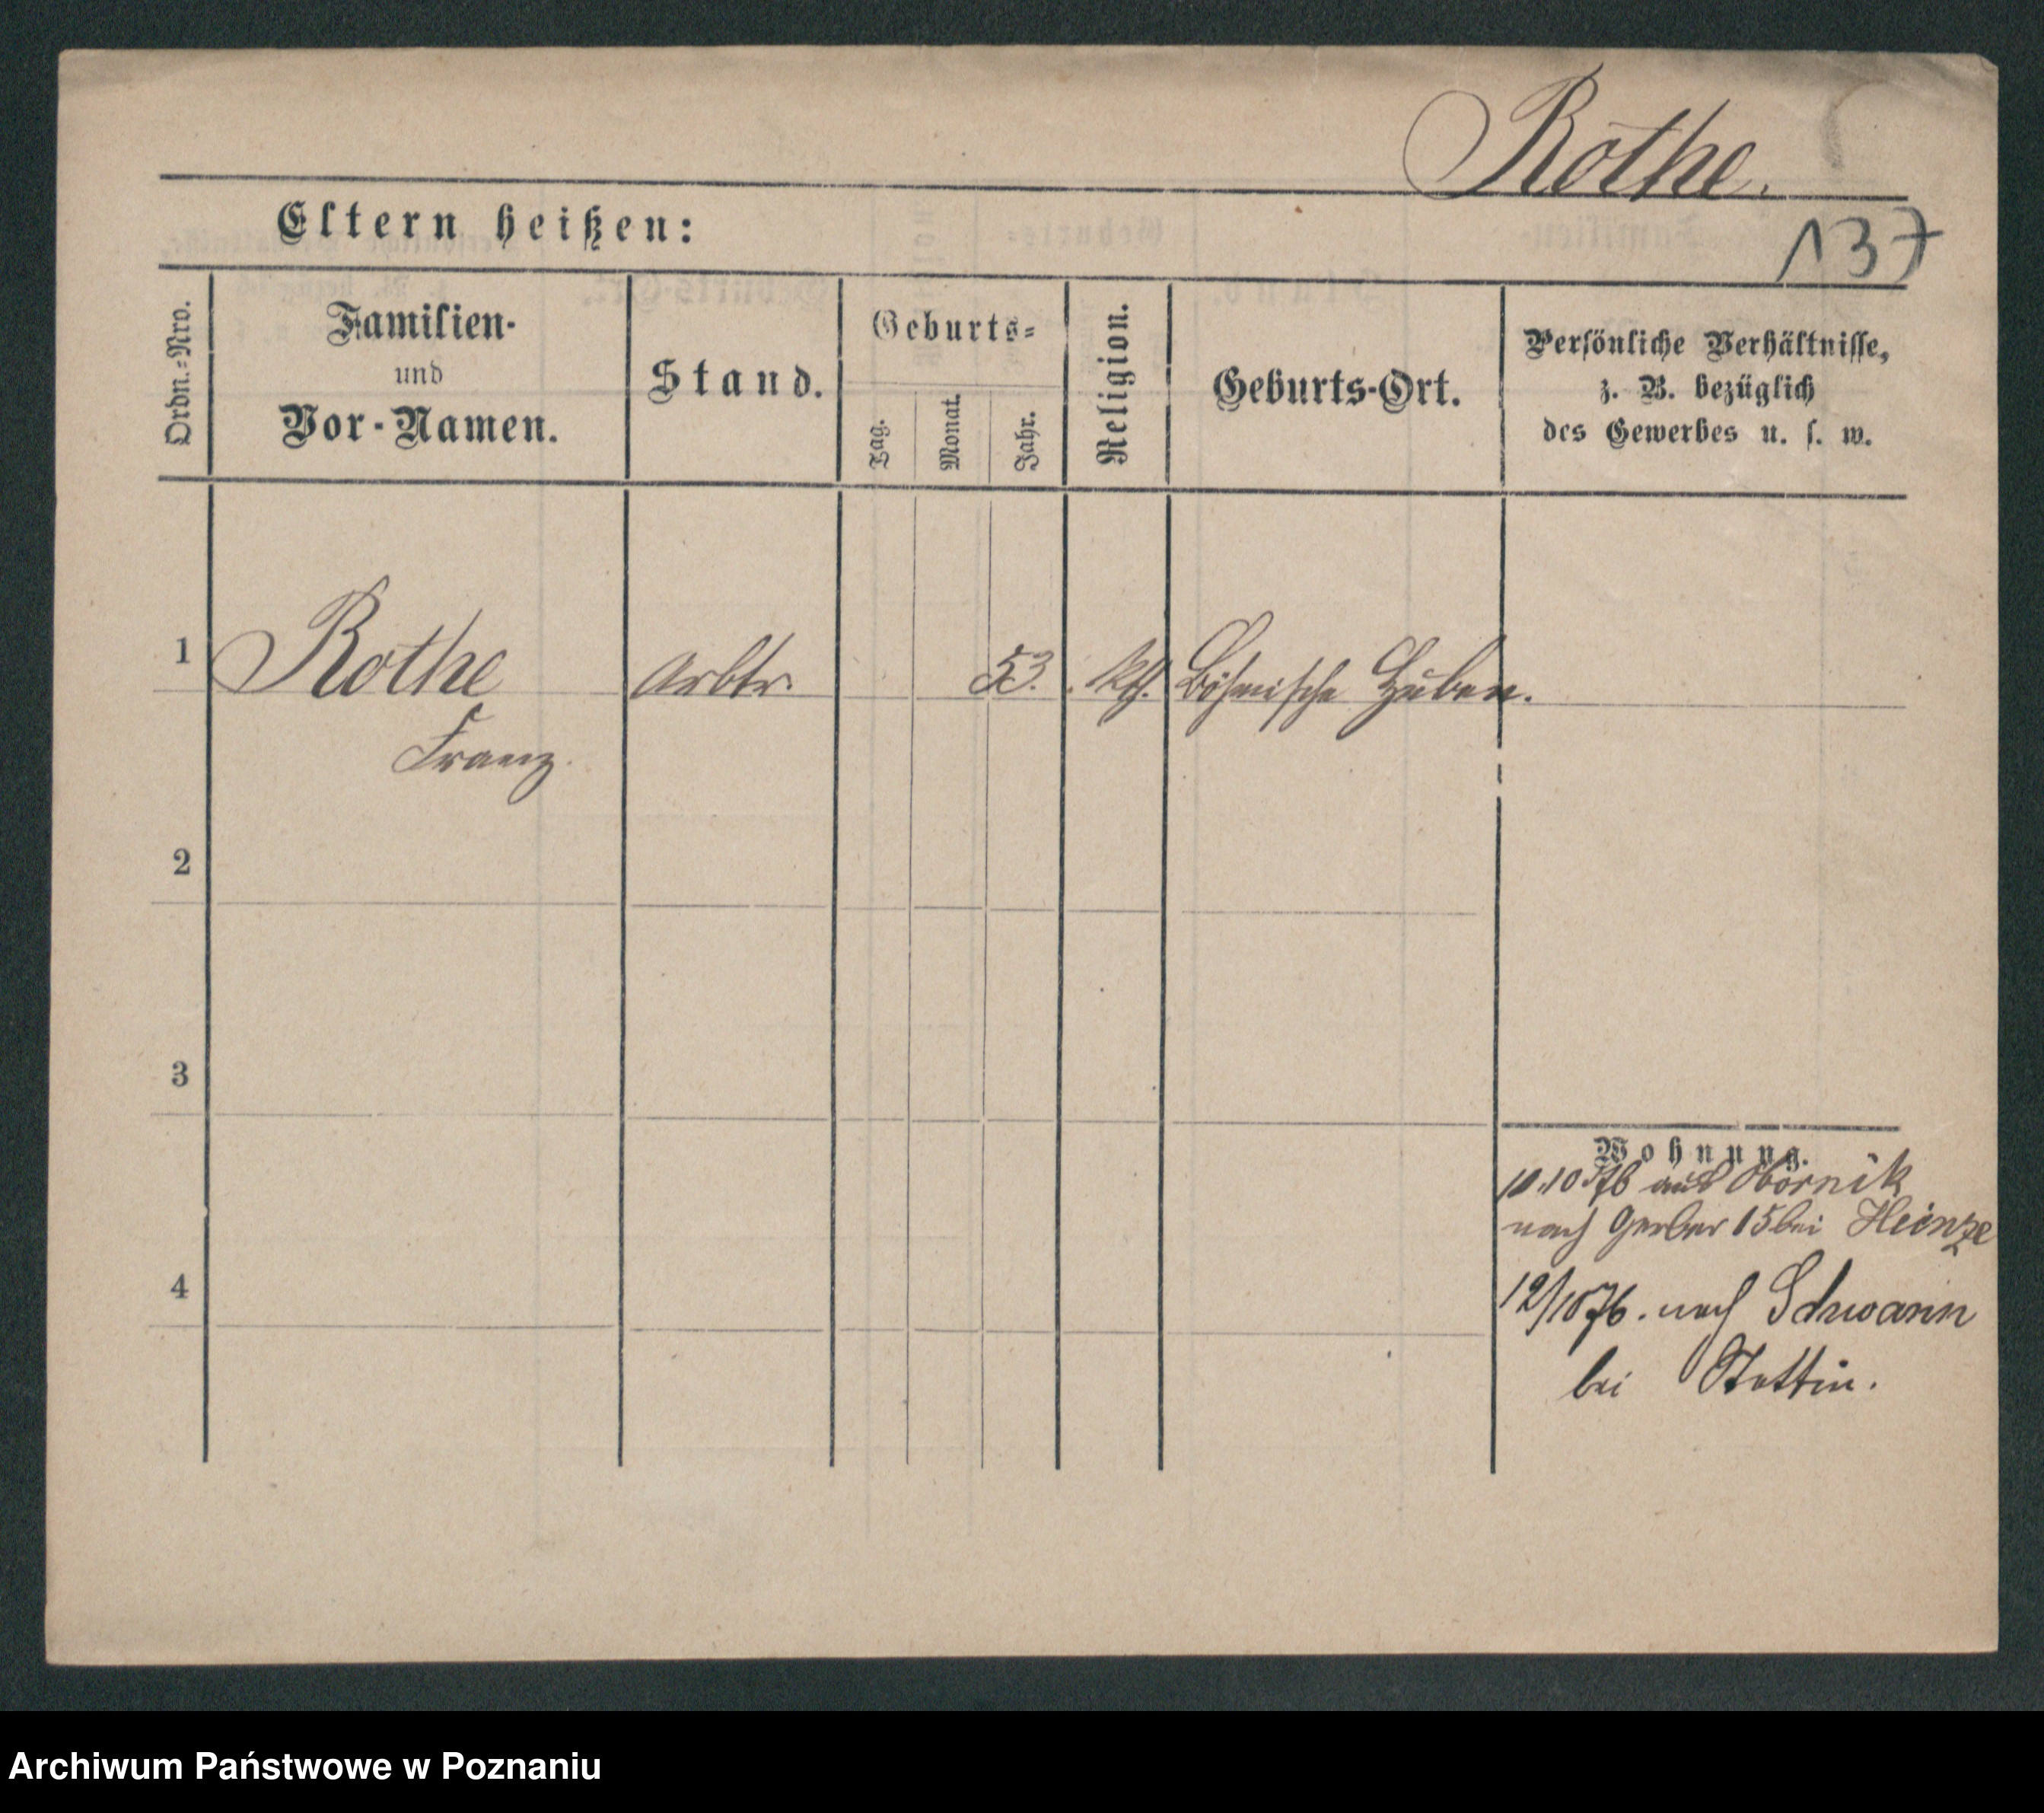 Rothe.
137
Eltern heißen:
Ordn.=Nro.
Familien-
und
Vor-Namen.
Stand.
Geburts=
Tag.
Monat.
Jahr.
Religion.
Geburts-Ort.
Persönliche Verhältnisse,
z. B. bezüglich
des Gewerbes u. s. w.
1 Rothe Arbtr. 53. kth. Böhmische Huben.
Franz.
2
3
Wohnung.
10.10 76 aus Obornik
nach Gerber 15 bei Heinze
4
12/10 76. nach Schwann
bei Stettin.
Archiwum Państwowe w Poznaniu